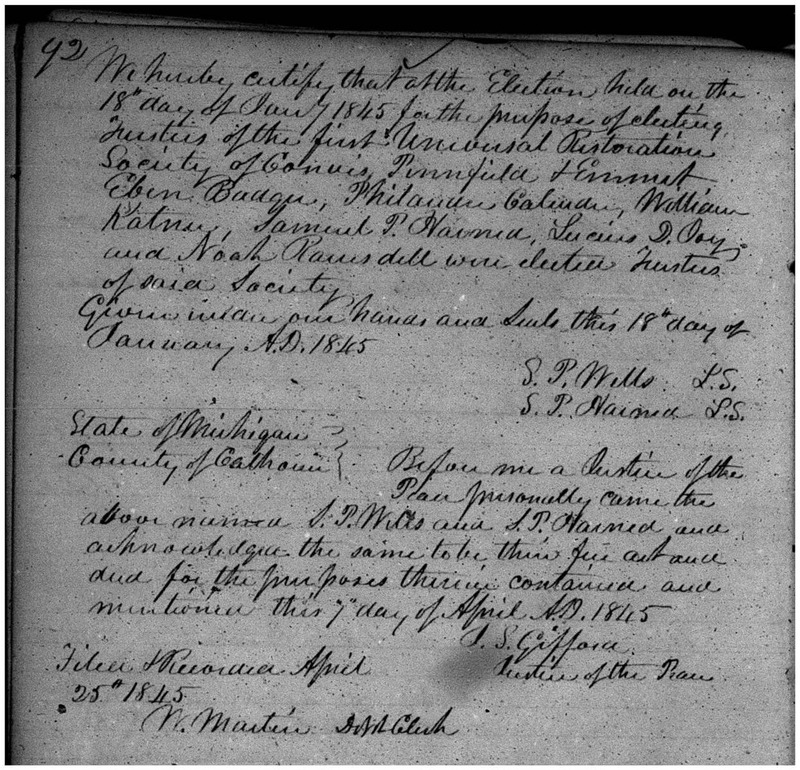 92
We hereby certify that at the Election held on the
18th day of Jany 1845 for the purpose of electing
Trustees of the first Universal Restoration
Society of Convis, Pennfield & Emmet
Eben Badger, Philander Calender, William
Samuel P. Harned, Lucius D. Joy
and Noah Ramsdell were elected Trustees
of said Society
Given under our hands and Seals this 18th day of
January A.D. 1845
S. P. Wells L.S.
S. P. Harned L.S.
State of Michigan
County of Calhoun Before me a Justice of the
Peace personally came the
above named S. P. Wells and S. P. Harned and
acknowledged the same to be their free act and
deed for the purposes therein contained and
mentioned this 7th day of April A.D. 1845
S. Gifford
Filed & Recorded April Justice of the Peace
25th 1845
W. Martin Clerk